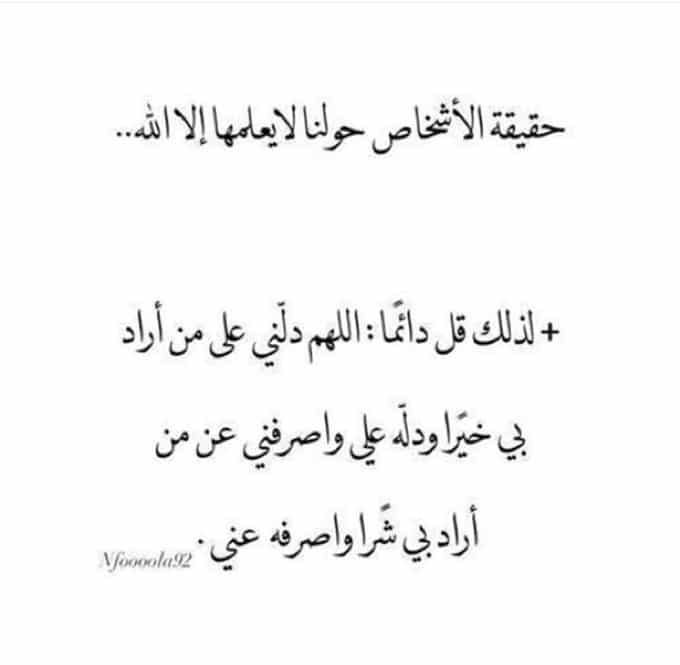 حقيقة الأشخاص حولنا لا يعلمها إلا الله..
+ لذلك قل دائمًا : اللهم دلّني على من أراد
بي خيرًا ودلّه علي واصرفني عن من
أراد بي شرًا واصرفه عني .
Nfoooola92